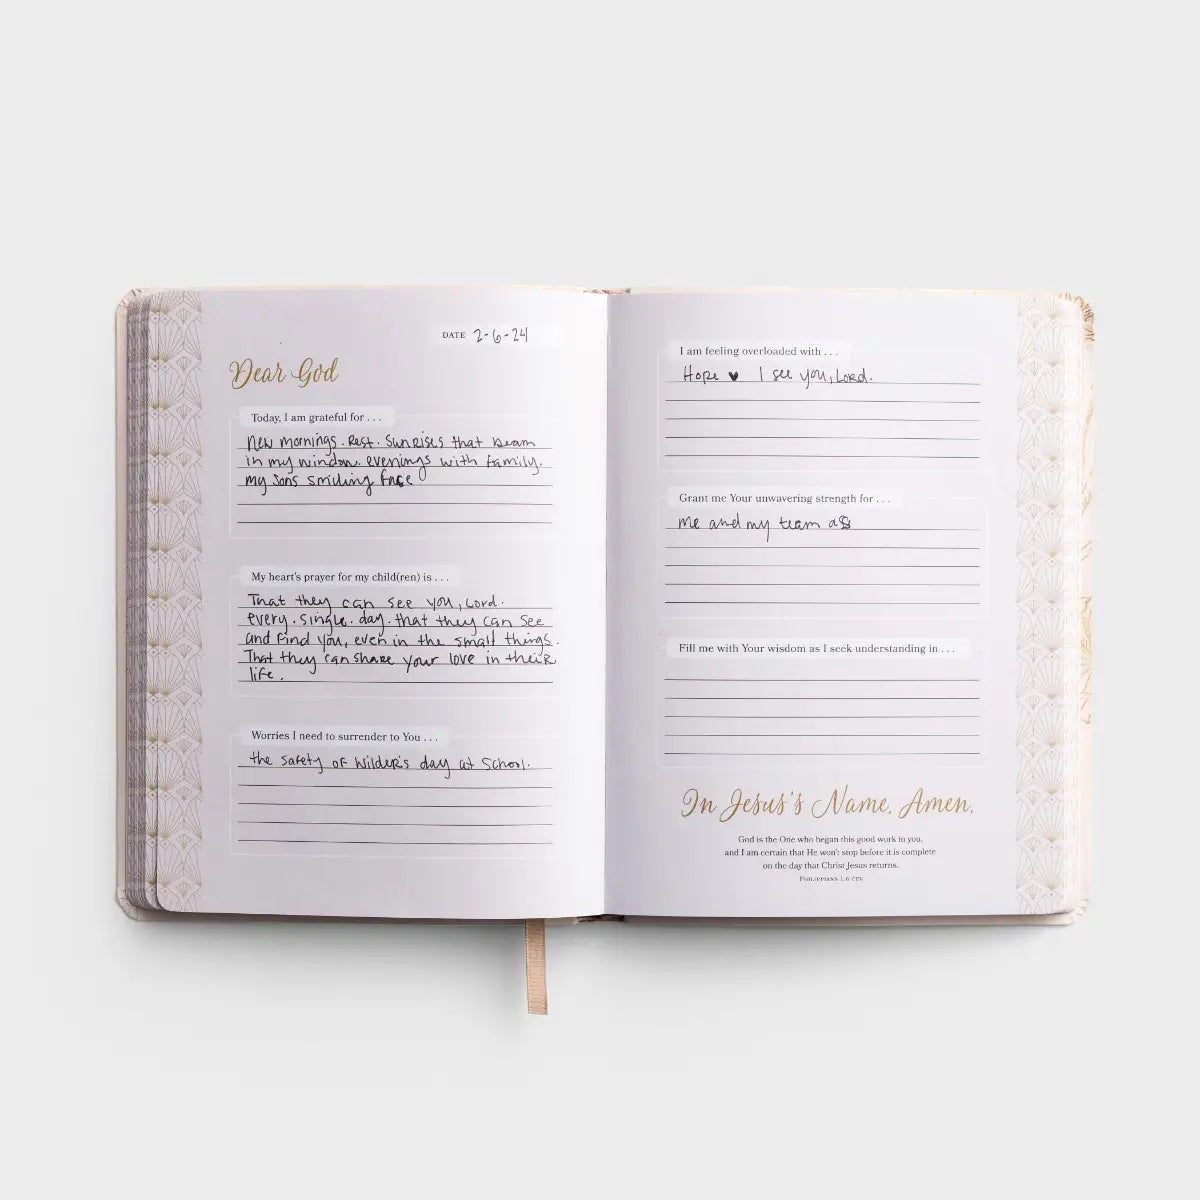 DATE 2-6-24
Dear God
Today, I am grateful for . . .
New mornings. Rest. Sunrises that beam
in my window. evenings with family.
my sons smiling face
My heart's prayer for my child(ren) is . . .
That they can see you, Lord.
every. single. day. that they can see
and find you, even in the small things.
That they can share your love in their
life.
Worries I need to surrender to You . . .
the safety of Wilder's day at School.
I am feeling overloaded with . . .
Hope ♥ I see you, Lord.
Grant me Your unwavering strength for . . .
me and my team as
Fill me with Your wisdom as I seek understanding in . . .
In Jesus's Name, Amen.
God is the One who began this good work in you,
and I am certain that He won't stop before it is complete
on the day that Christ Jesus returns.
PHILIPPIANS 1:6 CEV